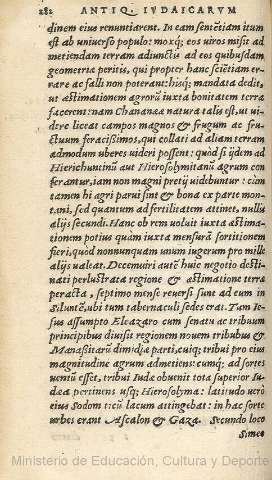 282 ANTIQ. IVDAICARVM
dinem eius renuntiarent. In eam sentẽtiam itum
est ab uniuerso populo: moxq; eos uiros misit ad
metiendam terram adiunctis ad eos quibusdam
geometriæ peritis, qui propter hanc sciẽtiam er-
rare ac falli non poterant: hisq; mandata dedit,
ut æstimationem agrorũ iuxta bonitatem terræ
facerent: nam Chananææ natura talis est, ut ui-
dere liceat campos magnos & frugum ac fru-
ctuum feracissimos, qui collati ad aliam terram
admodum uberes uideri possent: quod si ijdem ad
Hierichuntinũ aut Hierosolymitanũ agrum con
ferantur, iam non magni pretij uidebuntur: cùm
tamen hi agri parui sint & bona ex parte mont-
tani, sed quantum ad fertilitatem attinet, nullis
alijs secundi. Hanc ob rem uoluit iuxta æstima-
tionem potius quàm iuxta mensurã sortitionem
fieri, quòd nonnunquam unum iugerum pro mille
alijs ualeat. Decemuiri autẽ huic negotio desti-
nati perlustrata regione & æstimatione terræ
peracta, septimo mense reuersi sunt ad eum in
Siluntẽ, ubi tum tabernaculi sedes erat. Tum Ie-
sus assumpto Eleazaro cum senatu ac tribuum
principibus diuisit regionem nouem tribubus &
Manassitarũ dimidiæ parti, cuiq; tribui pro eius
magnitudine agrum admetiens: cumq; ad sortes
uentũ esset, tribui Iudæ obuenit tota superior Iu-
dæa pertinens usq; Hierosolyma: latitudo uerò
eius Sodomiticũ lacum attingebat: in hac sorte
urbes erant Ascalon & Gaza. Secundo loco
Simeo
Ministerio de Educación, Cultura y Deporte